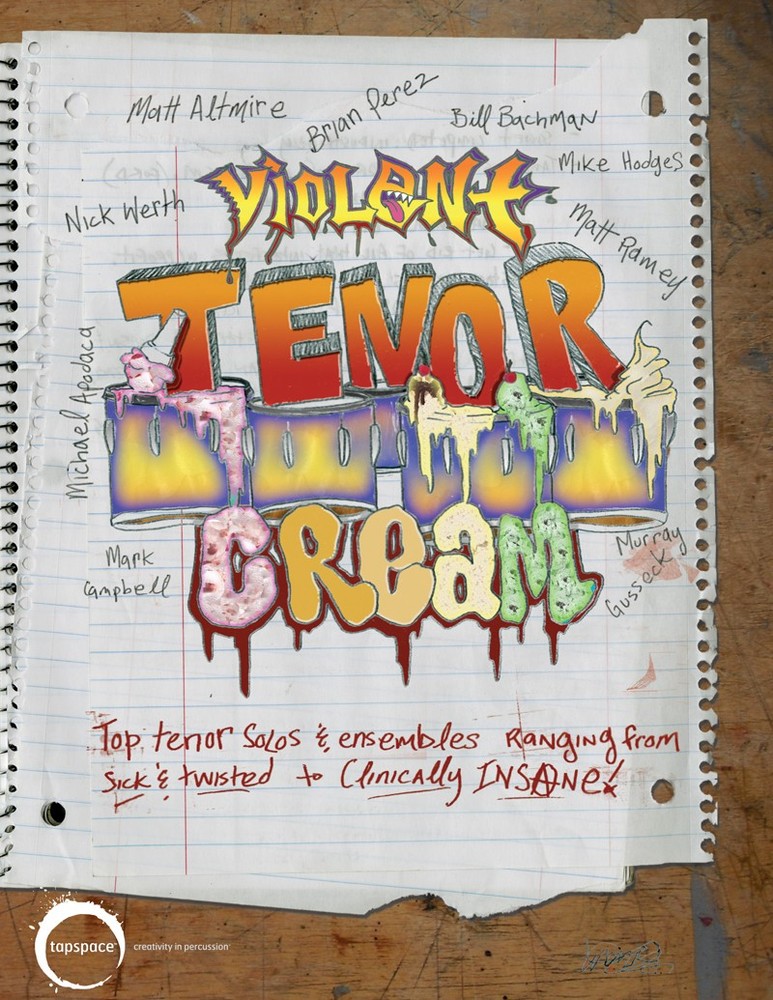 Matt Altmire
Brian Perez
Bill Bachman
Mike Hodges
Nick Werth
Matt Ramey
Michael Apodaca
VIOLENT
TENOR
CREAM
Mark
Campbell
Murray
Gusseck
Top tenor Solos & ensembles Ranging from
Sick & twisted to Clinically INSANe!
tapspace
creativity in percussion